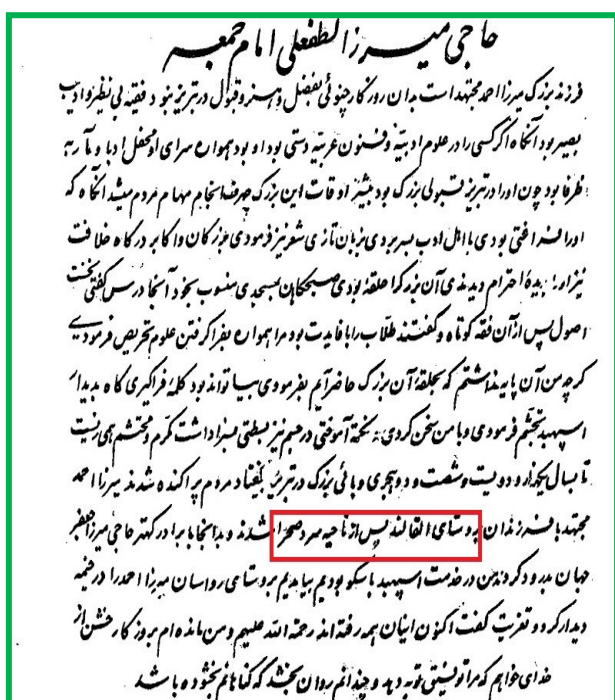 حاجی میرزا لطفعلی امام جمعه
فرزند بزرگ میرزا احمد مجتهد است بدان روزگار چنوئی بفضل و هنر و قبول در تبریز نبود فقیه بی نظیر و ادیب
بصیر بود آنگاه اگر کسی را در علوم ادبیّه و فنون عربیّه دستی بود او بود همواره سرای او محفل ادبا و
ظرفا بود چون او را در تبریز قبولی بزرگ بود بیشتر اوقات این بزرگ صرف انجام مهام مردم میشد آنگاه که
او را فراغتی بودی با اهل ادب بسر بردی بزبان تازی شعر نیز فرمودی بزرگان و اکابر درگاه خلافت
نیز او را بدیدۀ احترام دیدندی آن بزرگ را حلقۀ بودی صبحگاهان بمسجدی منسوب بخود آنجا درس گفتی نخست
اصول پس از آن فقه کوتاه و گفتند طلّاب را با فایدت بود مرا همواره بفرا گرفتن علوم تحریص فرمودی
گرچه من آن پایه نداشتم که بحلقۀ آن بزرگ حاضر آیم بفرمودی بسا تواند بود کلۀ فراگیری گاه بدیدار
اسپهبد تجشّم فرمودی و با من سخن کردی نکتۀ آموختی در جسم نیز بسطتی بسزا داشت مکرّم و محتشم همی زیست
تا بسال یکهزار و دویست و شصت و دو هجری وبائی بزرگ در تبریز بیفتاد مردم پراکنده شدند میرزا احمد
مجتهد با فرزندان بروستای القالندیس از ناحیه سردصحرا شدند و بدانجا با برادر کهتر حاجی میرزا جعفر
جهان بدرود کردند من در خدمت اسپهبد باسکو بودیم بیامدیم بروستای رواسان میرزا احمد را در خیمه
دیدار کرد و تعزیت گفت اکنون اینان همه رفته‌اند رحمة الله علیهم و من مانده‌ام بروزگار خشن از
خدای خواهم که مرا توفیق توبه دهد و چندانم روان بخشد که گناهانم بخشوده باشد